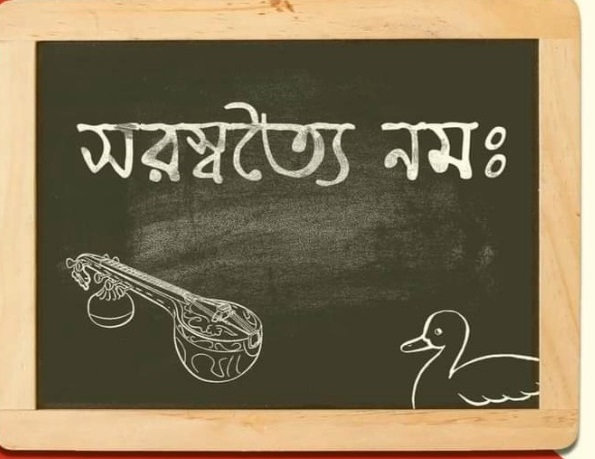 সরস্বত্যৈ নমঃ